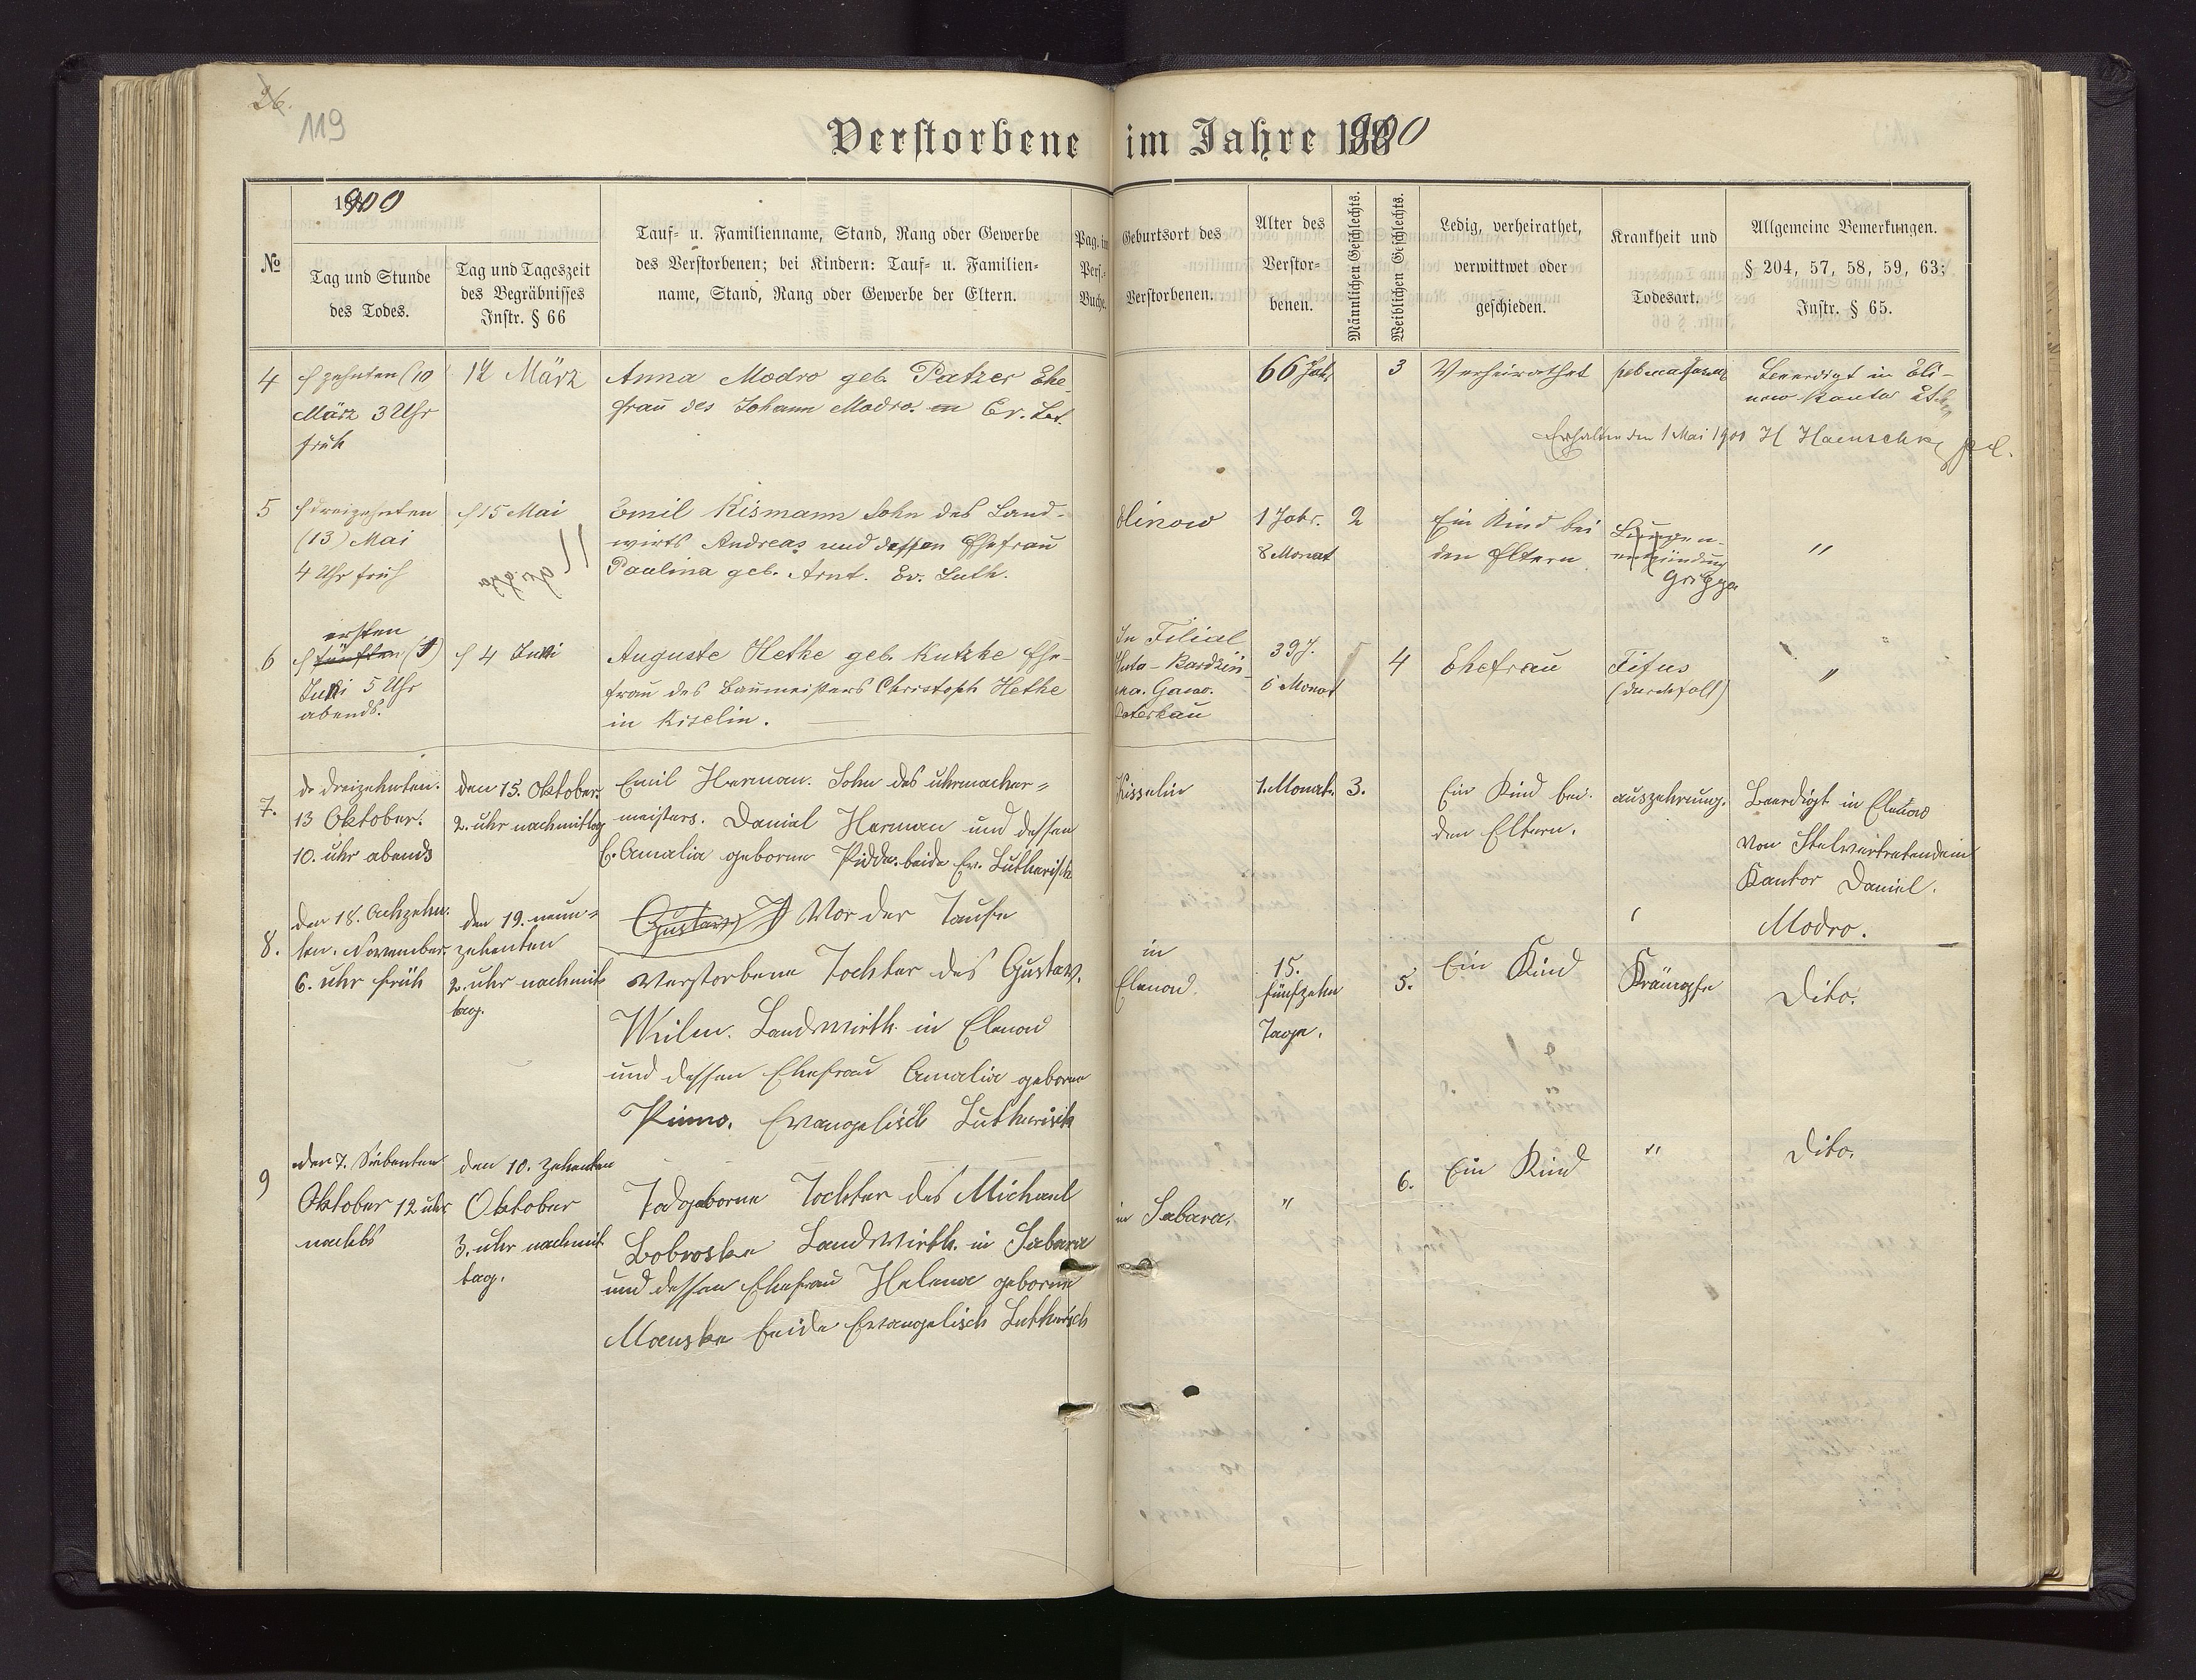 26.
119
Verstorbene im Jahre 1900
№
1900
Tag und Stunde
des Todes.
Tag und Tageszeit
des Begräbnisses
Instr. § 66
Tauf- u. Familienname, Stand, Rang oder Gewerbe
des Verstorbenen; bei Kindern: Tauf- u. Familien-
name, Stand, Rang oder Gewerbe der Eltern.
Pag. im
Pers.-
Buche.
Geburtsort des
Verstorbenen.
Alter des
Verstor-
benen.
Männlichen Geschlechts.
Weiblichen Geschlechts.
Ledig, verheirathet,
verwittwet oder
geschieden.
Krankheit und
Todesart.
Allgemeine Bemerkungen.
§ 204, 57, 58, 59, 63;
Instr. § 65.
4
zehnten (10
März 3 Uhr
früh
12 März
Anna Modro geb. Patzer Ehe-
frau des Johann Modro. Ev. Lut.
66 Jahr
3
Verheirathet
Beerdigt in Eli-
now Kantor
Erhalten den 1 Mai 1900 H Haenschke
5
dreizehnten
(13) Mai
4 Uhr früh
15 Mai
Emil Kismann Sohn des Land-
wirts Andreas und dessen Ehefrau
Paulina geb. Arnt. Ev. Luth.
Elinow
1 Jahr.
8 Monat
2
Ein Kind bei
den Eltern.
Lungen-
entzündung
Grippe
"
6
ersten
fünften (1)
Juni 5 Uhr
abends.
4 Juni
Auguste Hethe geb. Kutzke Ehe-
frau des Baumeisters Christoph Hethe
in Kiselin.
In Filial
Huta-Bardzin
Gouv.
Peterkau
39 J.
6 Monat
4
Ehefrau
Tifus
(durchfall)
"
7.
dreizehnten.
13 Oktober.
10. uhr abends
den 15. Oktober.
2. uhr nachmittag
Emil Herman. Sohn des uhrmacher=
meisters. Daniel Herman und dessen
E. Amalia geborne Pidde. beide Ev. Lutherisch
Kisselin
1. Monat.
3.
Ein Kind bei.
den Eltern.
auszehrung.
Beerdigt in Elenow
von Stelvertretendem
Kantor Daniel.
Modro.
8.
den 18. Achzehn.
ten. November.
6. uhr früh
den 19. neun=
zehenten
2. uhr nachmit
tag.
Gustav Vor der Taufe
verstorbene Tochter des Gustav.
Landwirth in Elenow
und dessen Ehefrau Amalia geborne
Evangelisch Lutherisch
in
Elenow.
15.
fünfzehn
Tage.
5.
Ein Kind
Krämpfe
Dito.
9
den 7. Siebenten
Oktober 12 uhr
nachts
den 10. zehenten
Oktober
3. uhr nachmit
tag.
Todgeborne Tochter des Michael
Bobroske Landwirth. in Sabara
und dessen Ehefrau Helena geborne
Manske beide Evangelisch Lutherisch
in Sabara.
"
6.
Ein Kind
"
Dito.